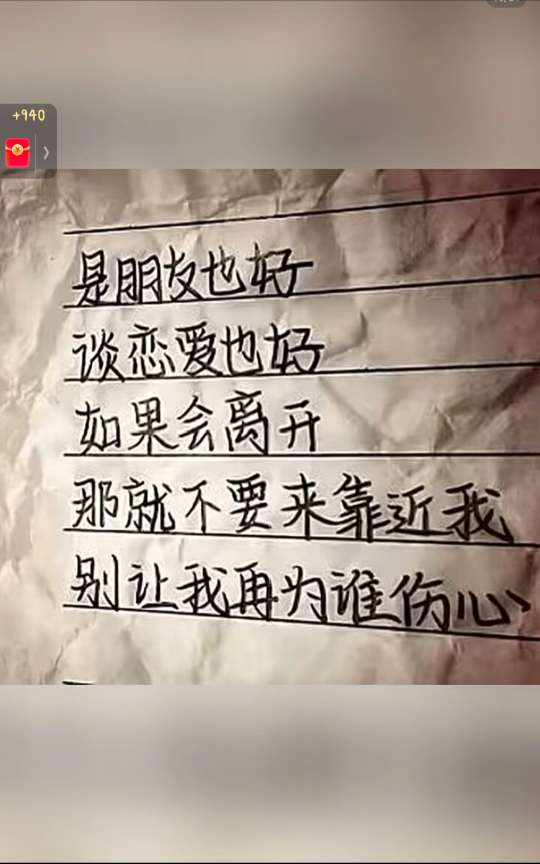 +940
是朋友也好
谈恋爱也好
如果会离开
那就不要来靠近我
别让我再为谁伤心